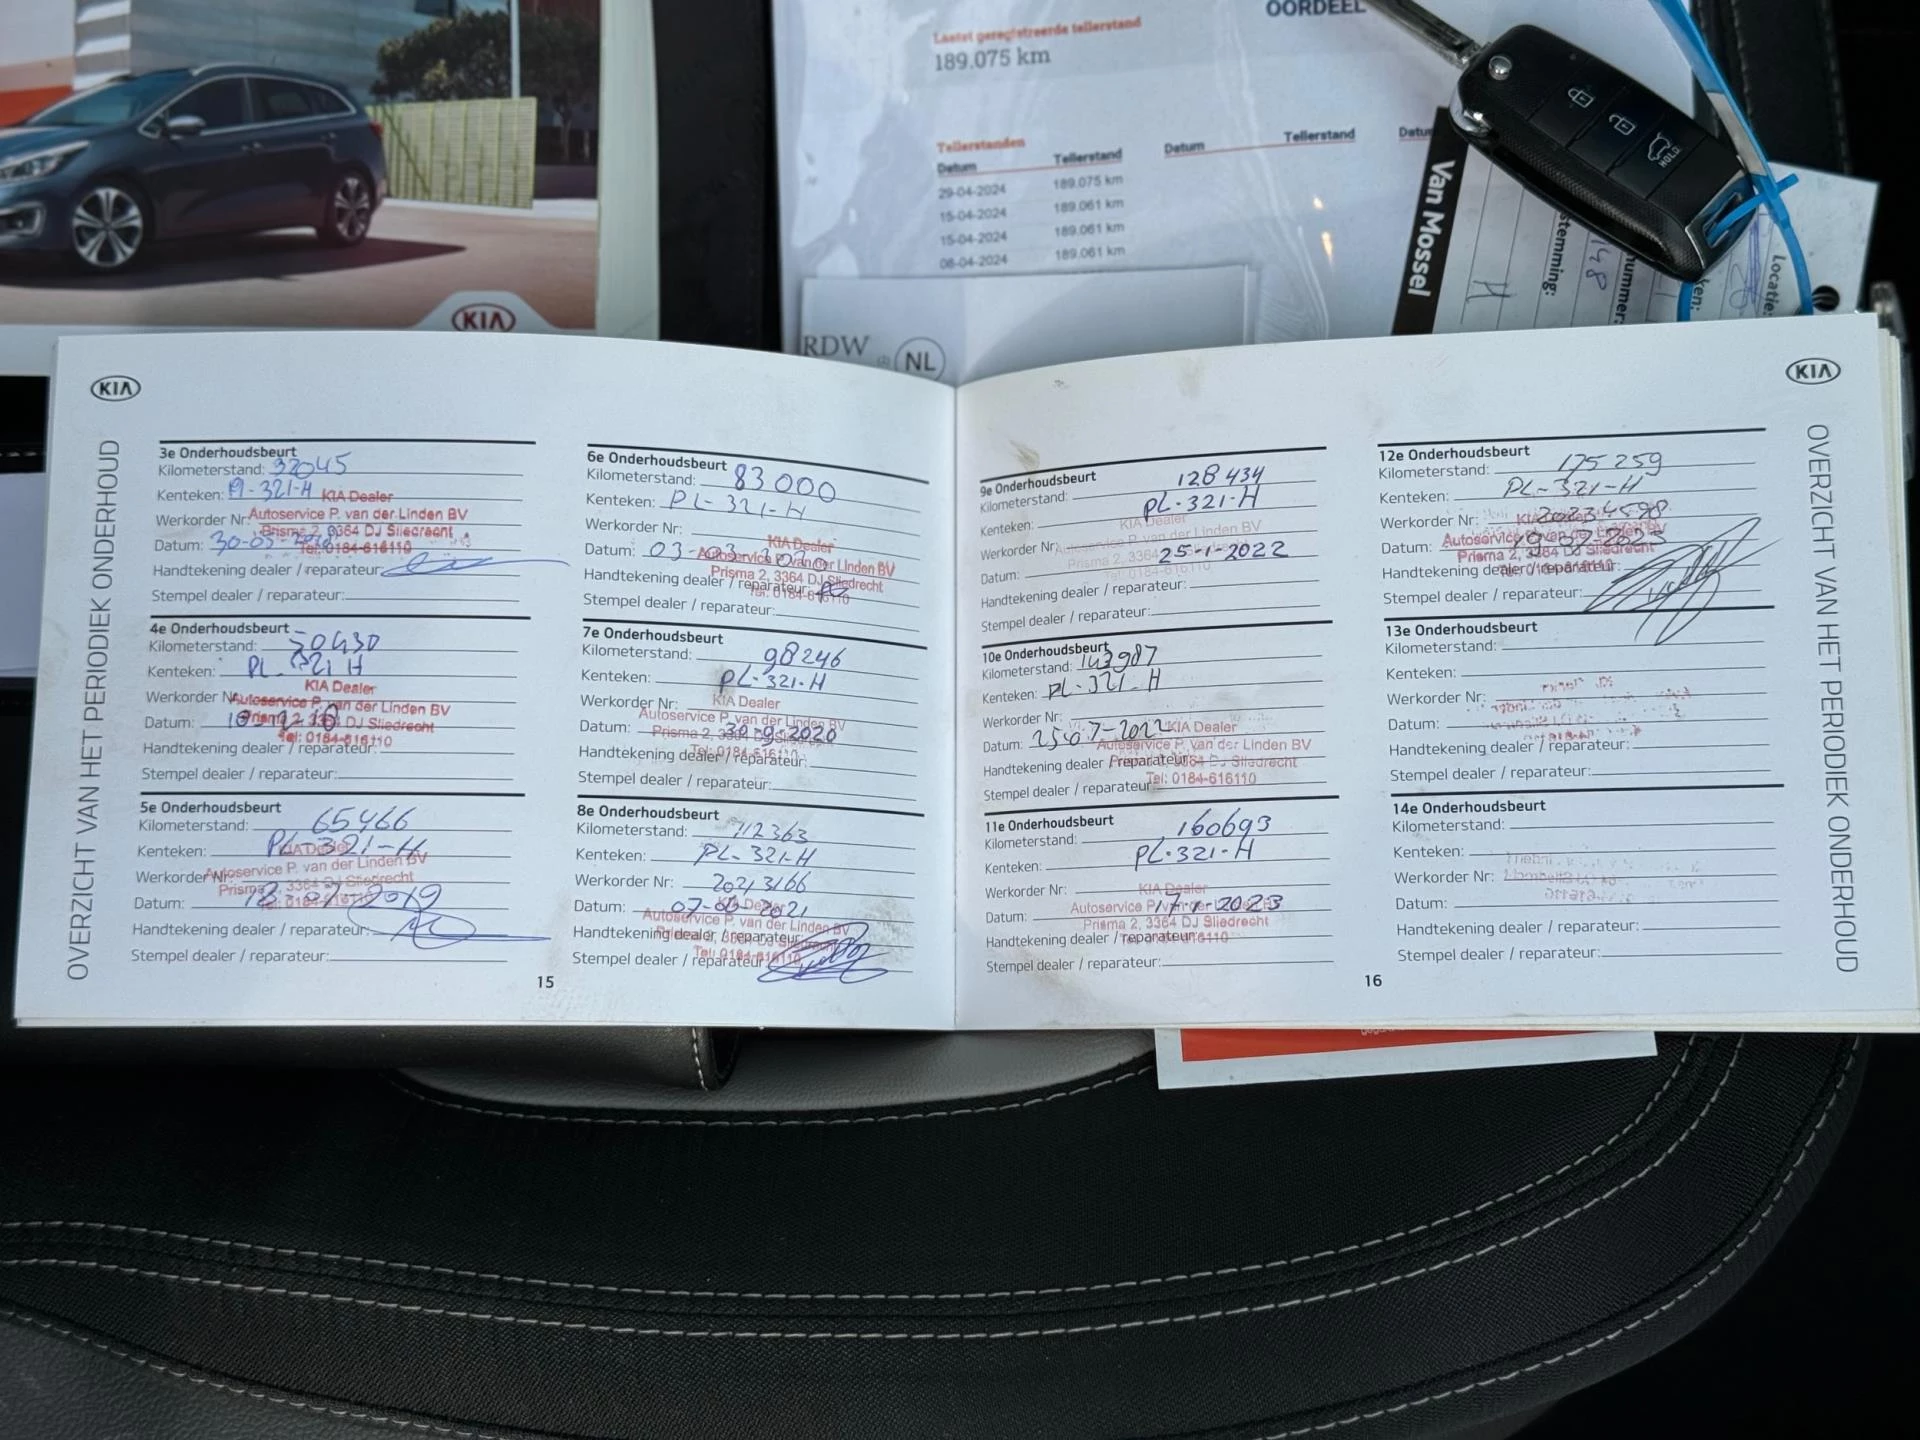 OORDEEL
Laatst geregistreerde tellerstand
189.075 km
Tellerstanden
Datum Tellerstand Datum Tellerstand Datum
29-04-2024 189.075 km
15-04-2024 189.061 km
15-04-2024 189.061 km
08-04-2024 189.061 km
RDW NL
KIA
HOLD
Van Mossel
Locatie:
KIA
OVERZICHT VAN HET PERIODIEK ONDERHOUD
3e Onderhoudsbeurt
Kilometerstand: 32045
Kenteken: Pl-321-H
KIA Dealer
Werkorder Nr: Autoservice P. van der Linden BV
Prisma 2, 3364 DJ Sliedrecht
Datum: 30-05-2018 Tel: 0184-616110
Handtekening dealer / reparateur:
Stempel dealer / reparateur:
4e Onderhoudsbeurt
Kilometerstand: 50430
Kenteken: PL 321 H
KIA Dealer
Werkorder Nr: Autoservice P. van der Linden BV
Prisma 2, 3364 DJ Sliedrecht
Datum:
Tel: 0184-616110
Handtekening dealer / reparateur:
Stempel dealer / reparateur:
5e Onderhoudsbeurt
Kilometerstand: 65466
Kenteken: PL 321-H
KIA Dealer
Werkorder Nr: Autoservice P. van der Linden BV
Prisma 2, 3364 DJ Sliedrecht
Datum: 2019
Tel: 0184-616110
Handtekening dealer / reparateur:
Stempel dealer / reparateur:
6e Onderhoudsbeurt
Kilometerstand: 83000
Kenteken: PL-321-H
Werkorder Nr: KIA Dealer
Datum: 03-03-2020 Autoservice P. van der Linden BV
Prisma 2, 3364 DJ Sliedrecht
Handtekening dealer / reparateur: Tel: 0184-616110
Stempel dealer / reparateur:
7e Onderhoudsbeurt
Kilometerstand: 98246
Kenteken: PL-321-H
Werkorder Nr: KIA Dealer
Autoservice P. van der Linden BV
Prisma 2, 3364 DJ Sliedrecht
Datum: 30-9-2020
Tel: 0184-616110
Handtekening dealer / reparateur:
Stempel dealer / reparateur:
8e Onderhoudsbeurt
Kilometerstand: 112363
Kenteken: PL-321-H
Werkorder Nr: 20213166
KIA Dealer
Datum: 07-06-2021
Autoservice P. van der Linden BV
Prisma 2, 3364 DJ Sliedrecht
Handtekening dealer / reparateur:
Tel: 0184-616110
Stempel dealer / reparateur:
15
9e Onderhoudsbeurt
Kilometerstand: 128434
Kenteken: PL-321-H
KIA Dealer
Werkorder Nr: Autoservice P. van der Linden BV
Prisma 2, 3364
Datum: 25-1-2022
Tel: 0184-616110
Handtekening dealer / reparateur:
Stempel dealer / reparateur:
10e Onderhoudsbeurt
Kilometerstand: 143987
Kenteken: PL-321-H
Werkorder Nr:
Datum: 25-07-2022 KIA Dealer
Autoservice P. van der Linden BV
Handtekening dealer / reparateur: Prisma 2, 3364 DJ Sliedrecht
Tel: 0184-616110
Stempel dealer / reparateur:
11e Onderhoudsbeurt
Kilometerstand: 160693
Kenteken: PL-321-H
Werkorder Nr: KIA Dealer
Datum: 17-1-2023
Autoservice P. van der Linden BV
Prisma 2, 3364 DJ Sliedrecht
Handtekening dealer / reparateur: Tel: 0184-616110
Stempel dealer / reparateur:
12e Onderhoudsbeurt
Kilometerstand: 175259
Kenteken: PL-321-H
Werkorder Nr: 20234598
KIA Dealer
Autoservice P. van der Linden BV
Datum: 19-07-2023
Prisma 2, 3364 DJ Sliedrecht
Handtekening dealer / reparateur:
Tel: 0184-616110
Stempel dealer / reparateur:
13e Onderhoudsbeurt
Kilometerstand:
Kenteken:
Werkorder Nr:
Datum:
Handtekening dealer / reparateur:
Stempel dealer / reparateur:
14e Onderhoudsbeurt
Kilometerstand:
Kenteken:
Werkorder Nr:
Datum:
Handtekening dealer / reparateur:
Stempel dealer / reparateur:
16
KIA
OVERZICHT VAN HET PERIODIEK ONDERHOUD